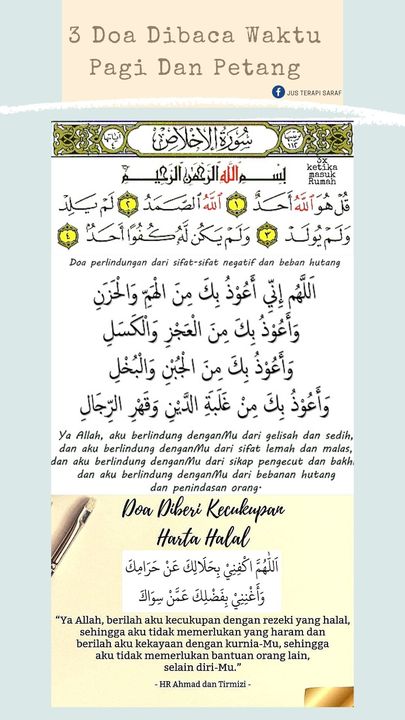 3 Doa Dibaca Waktu
Pagi Dan Petang
JUS TERAPI SARAF
سُورَةُ الإِخْلَاصِ
3x
ketika
masuk
Rumah
بِسْمِ اللَّهِ الرَّحْمَٰنِ الرَّحِيمِ
قُلْ هُوَ اللَّهُ أَحَدٌ ١ اللَّهُ الصَّمَدُ ٢ لَمْ يَلِدْ
وَلَمْ يُولَدْ ٣ وَلَمْ يَكُن لَّهُ كُفُوًا أَحَدٌ ٤
Doa perlindungan dari sifat-sifat negatif dan beban hutang
اَللَّهُم إِنِّي أَعُوْذُ بِكَ مِنَ الْهَمِّ وَالْحَزَنِ
وَأَعُوْذُ بِكَ مِنَ الْعَجْزِ وَالْكَسَلِ
وَأَعُوْذُ بِكَ مِنَ الْجُبْنِ وَالْبُخْلِ
وَأَعُوْذُ بِكَ مِنْ غَلَبَةِ الدَّيْنِ وَقَهْرِ الرِّجَالِ
Ya Allah, aku berlindung denganMu dari gelisah dan sedih,
dan aku berlindung denganMu dari sifat lemah dan malas,
dan aku berlindung denganMu dari sikap pengecut dan bakhi
dan aku berlindung denganMu dari bebanan hutang
dan penindasan orang.
Doa Diberi Kecukupan
Harta Halal
اَللّٰهُمَّ اكْفِنِيْ بِحَلَالِكَ عَنْ حَرَامِكَ
وَأَغْنِنِيْ بِفَضْلِكَ عَمَّنْ سِوَاكَ
“Ya Allah, berilah aku kecukupan dengan rezeki yang halal,
sehingga aku tidak memerlukan yang haram dan
berilah aku kekayaan dengan kurnia-Mu, sehingga
aku tidak memerlukan bantuan orang lain,
selain diri-Mu.”
- HR Ahmad dan Tirmizi -